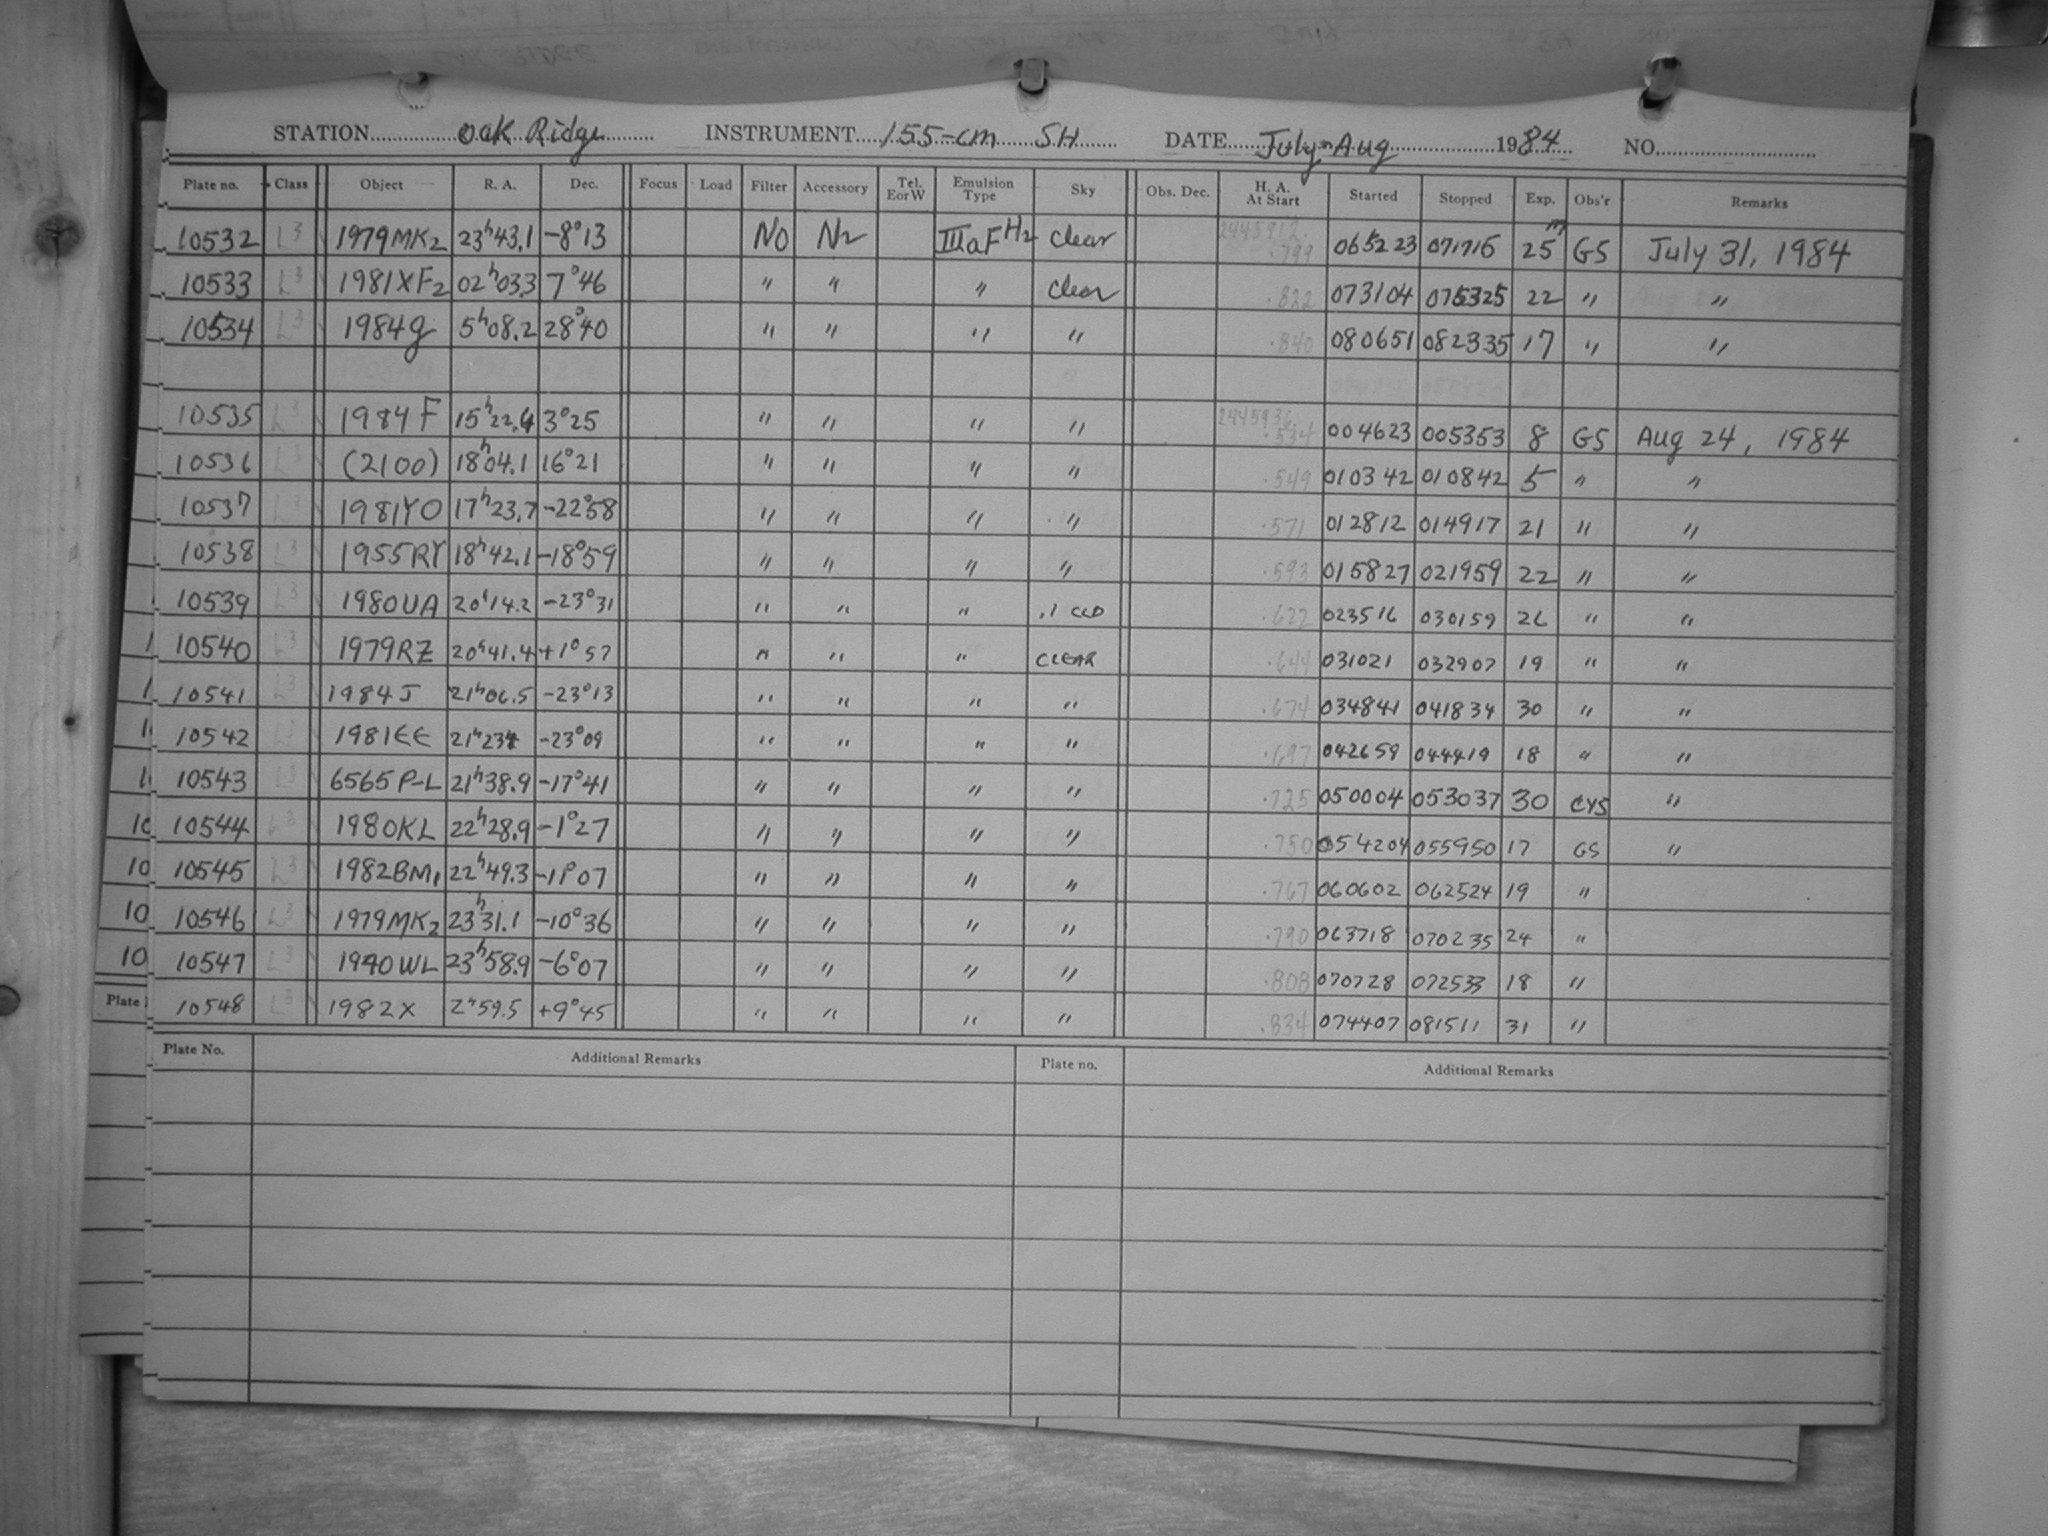 STATION Oak Ridge INSTRUMENT 155-cm SH DATE July-Aug 1984 NO.
Plate no. Class Object R. A. Dec. Focus Load Filter Accessory Tel. EorW Emulsion Type Sky Obs. Dec. H. A. At Start Started Stopped Exp. Obs'r Remarks
10532 L3 1979MK2 23h43.1 -8°13 NO N2 IIIaF H2 clear 2445912. .799 065223 071715 25m GS July 31, 1984
10533 L3 1981XF2 02h03.3 7°46 " " " clear .822 073104 075325 22 " "
10534 L3 1984g 5h08.2 28°40 " " " " .840 080651 082335 17 " "
10535 L3 1984F 15h22.4 3°25 " " " " 2445936. .534 004623 005353 8 GS Aug 24, 1984
10536 L3 (2100) 18h04.1 16°21 " " " " .549 010342 010842 5 " "
10537 L3 1981YO 17h23.7 -22°58 " " " " .571 012812 014917 21 " "
10538 L3 1955RY 18h42.1 -18°59 " " " " .593 015827 021959 22 " "
10539 L3 1980UA 20h14.2 -23°31 " " " .1 CLD .622 023516 030159 26 " "
10540 L3 1979RZ 20h41.4 +1°57 " " " CLEAR .644 031021 032907 19 " "
10541 L3 1984J 21h06.5 -23°13 " " " " .674 034841 041834 30 " "
10542 L3 1981EE -23°09 " " " " .697 042659 044419 18 " "
10543 L3 6565P-L 21h38.9 -17°41 " " " " .725 050004 053037 30 CYS "
10544 L3 1980KL 22h28.9 -1°27 " " " " .750 054204 055950 17 GS "
10545 L3 1982BM1 22h49.3 -11°07 " " " " .767 060602 062524 19 "
10546 L3 1979MK2 23h31.1 -10°36 " " " " .790 063718 070235 24 "
10547 L3 1940WL 23h58.9 -6°07 " " " " .808 070728 072533 18 "
10548 L3 1982X 2h59.5 +9°45 " " " " .834 074407 081511 31 "
Plate No. Additional Remarks Plate no. Additional Remarks